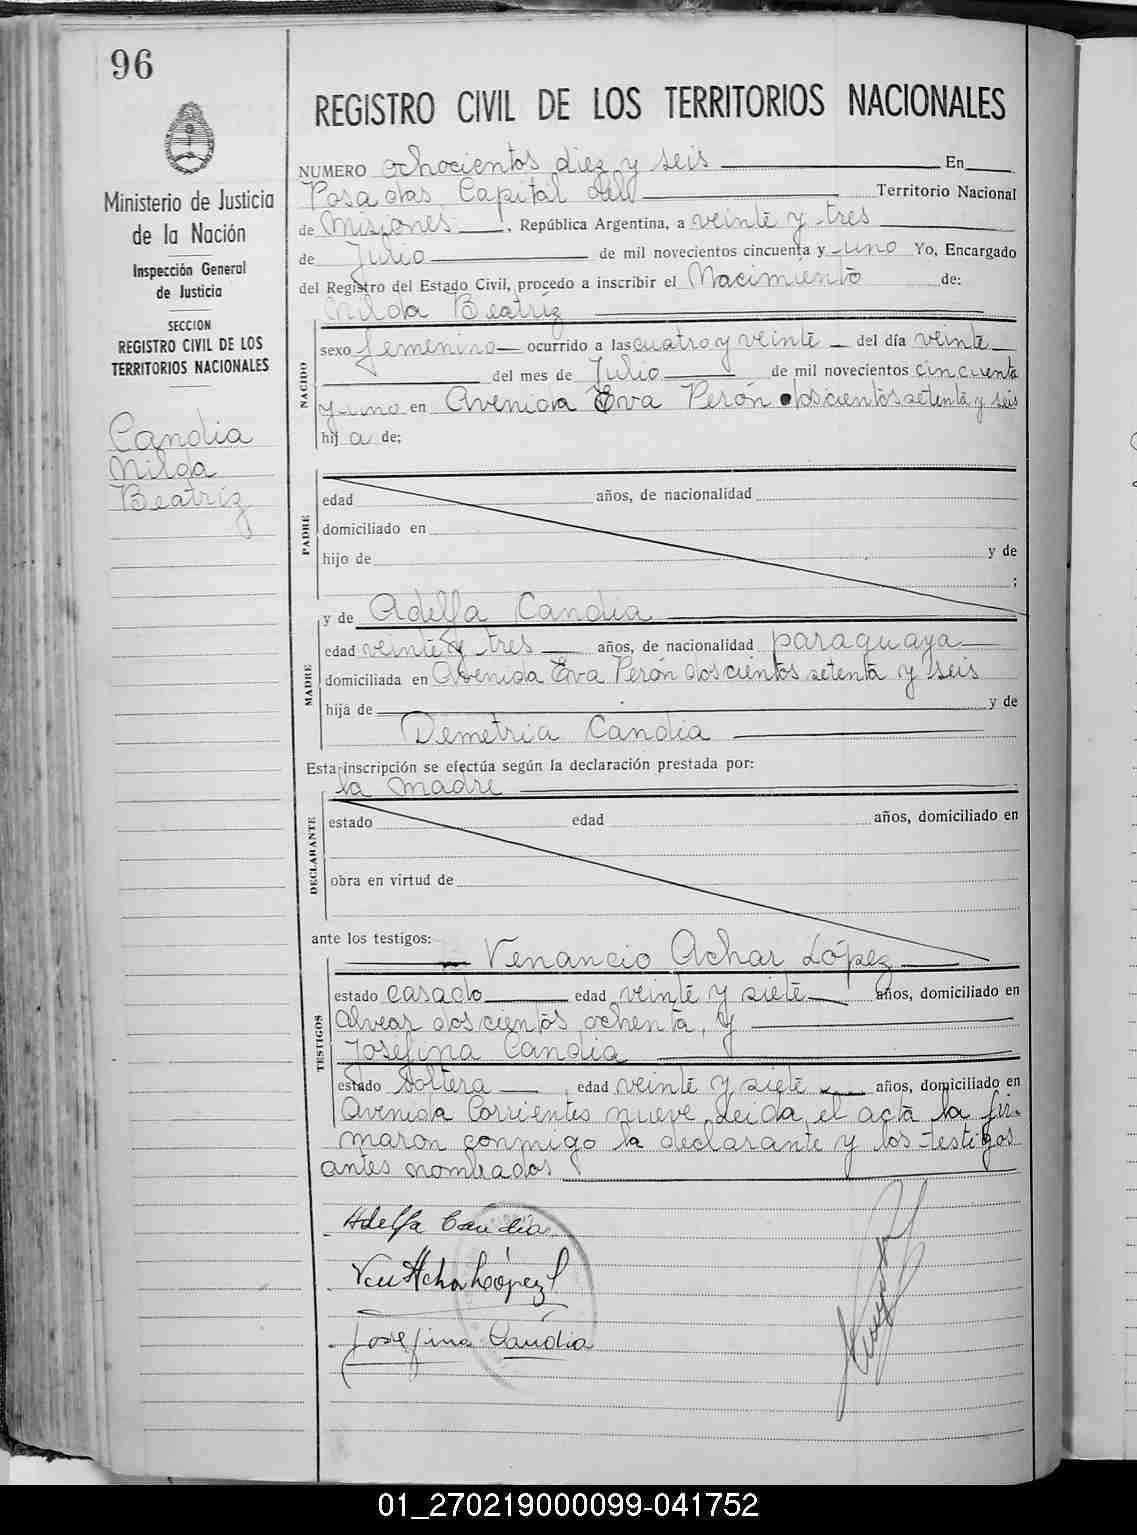 96
Ministerio de Justicia
de la Nación
Inspección General
de Justicia
SECCION
REGISTRO CIVIL DE LOS
TERRITORIOS NACIONALES
Candia
Nilda
Beatriz
REGISTRO CIVIL DE LOS TERRITORIOS NACIONALES
NUMERO ochocientos diez y seis En
Posadas Capital del Territorio Nacional
de Misiones, República Argentina, a veinte y tres
de Julio de mil novecientos cincuenta y uno Yo, Encargado
del Registro del Estado Civil, procedo a inscribir el Nacimiento de:
Nilda Beatriz
NACIDO
sexo femenino ocurrido a las cuatro y veinte del día veinte
del mes de Julio de mil novecientos cincuenta
y uno en Avenida Eva Perón doscientos setenta y seis
hija de;
PADRE
edad años, de nacionalidad
domiciliado en
hijo de y de
;
y de Adelfa Candia
MADRE
edad veinte y tres años, de nacionalidad paraguaya
domiciliada en Avenida Eva Perón doscientos setenta y seis
hija de y de
Demetria Candia
Esta inscripción se efectúa según la declaración prestada por:
la madre
DECLARANTE
estado edad años, domiciliado en
obra en virtud de
ante los testigos:
Venancio Achar López
TESTIGOS
estado casado edad veinte y siete años, domiciliado en
Alvear doscientos ochenta, y
Josefina Candia
estado soltera edad veinte y siete años, domiciliado en
Avenida Corrientes nueve. Leida el acta la fir-
maron conmigo la declarante y los testigos
antes nombrados
Adelfa Candia
Ven Achar López
Josefina Candia
01_270219000099-041752